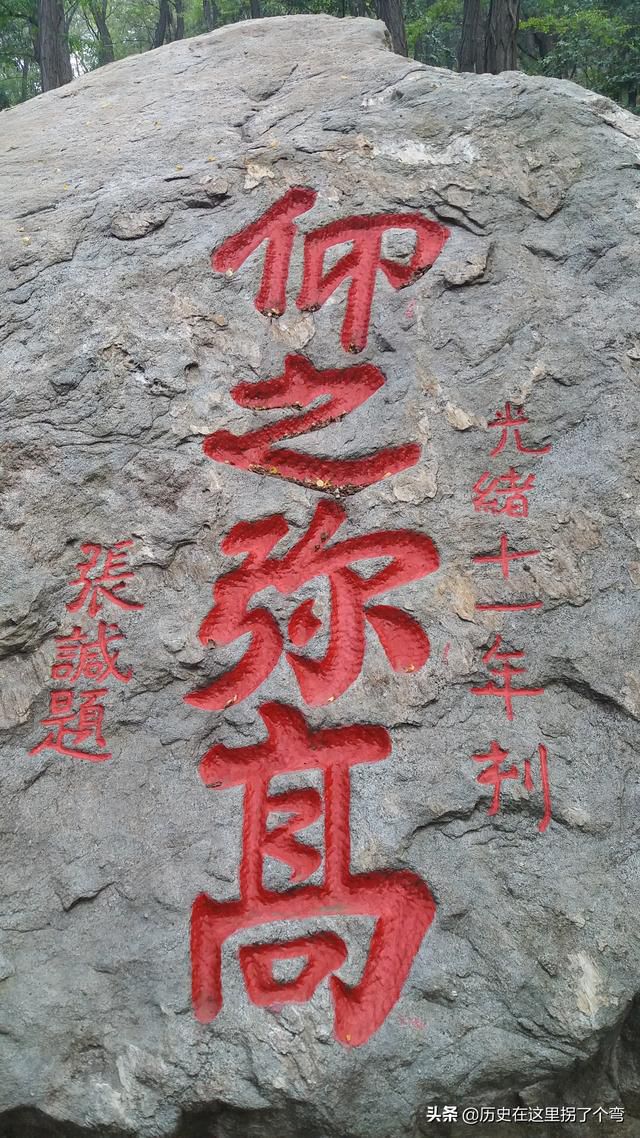 光緒十一年刊
仰之弥髙
張諴題
头条 @历史在这里拐了个弯